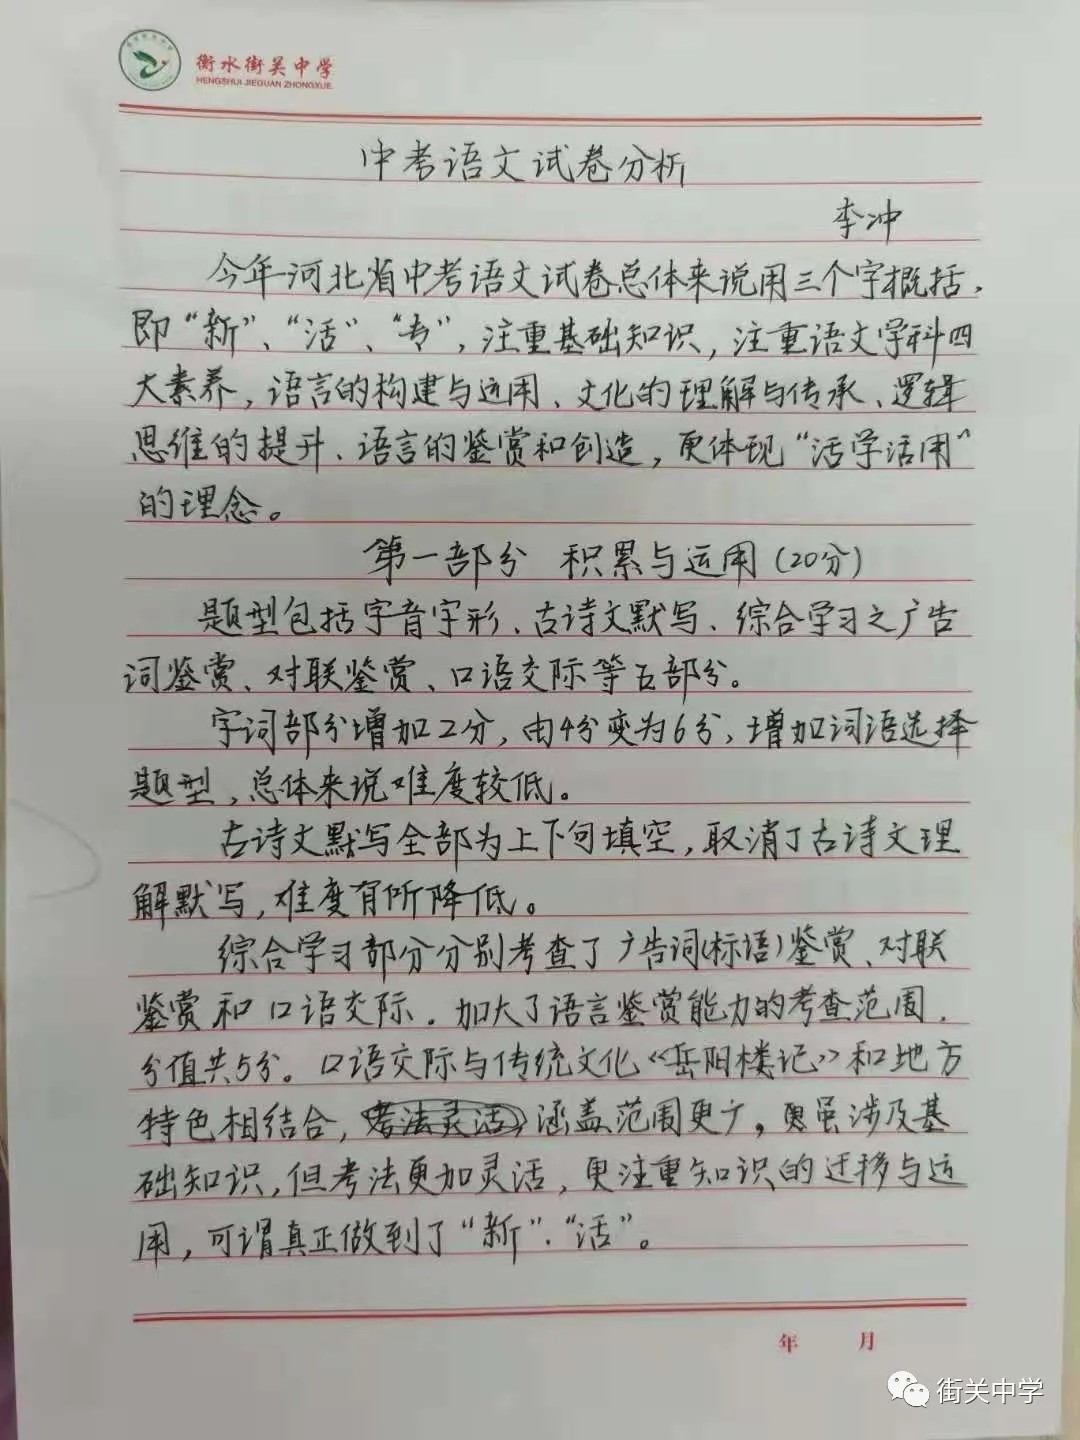 衡水街关中学
HENGSHUI JIEGUAN ZHONGXUE
中考语文试卷分析
李冲
今年河北省中考语文试卷总体来说用三个字概括，
即“新”、“活”、“专”，注重基础知识，注重语文学科四
大素养，语言的构建与运用、文化的理解与传承、逻辑
思维的提升、语言的鉴赏和创造，更体现“活学活用”
的理念。
第一部分 积累与运用（20分）
题型包括字音字形、古诗文默写、综合学习之广告
词鉴赏、对联鉴赏、口语交际等五部分。
字词部分增加2分，由4分变为6分，增加词语选择
题型，总体来说难度较低。
古诗文默写全部为上下句填空，取消了古诗文理
解默写，难度有所降低。
综合学习部分分别考查了广告词(标语)鉴赏、对联
鉴赏和口语交际．加大了语言鉴赏能力的考查范围．
分值共5分。口语交际与传统文化《岳阳楼记》和地方
特色相结合，考法灵活，涵盖范围更广。虽涉及基
础知识，但考法更加灵活，更注重知识的迁移与运
用，可谓真正做到了“新”．“活”。
年 月
街关中学